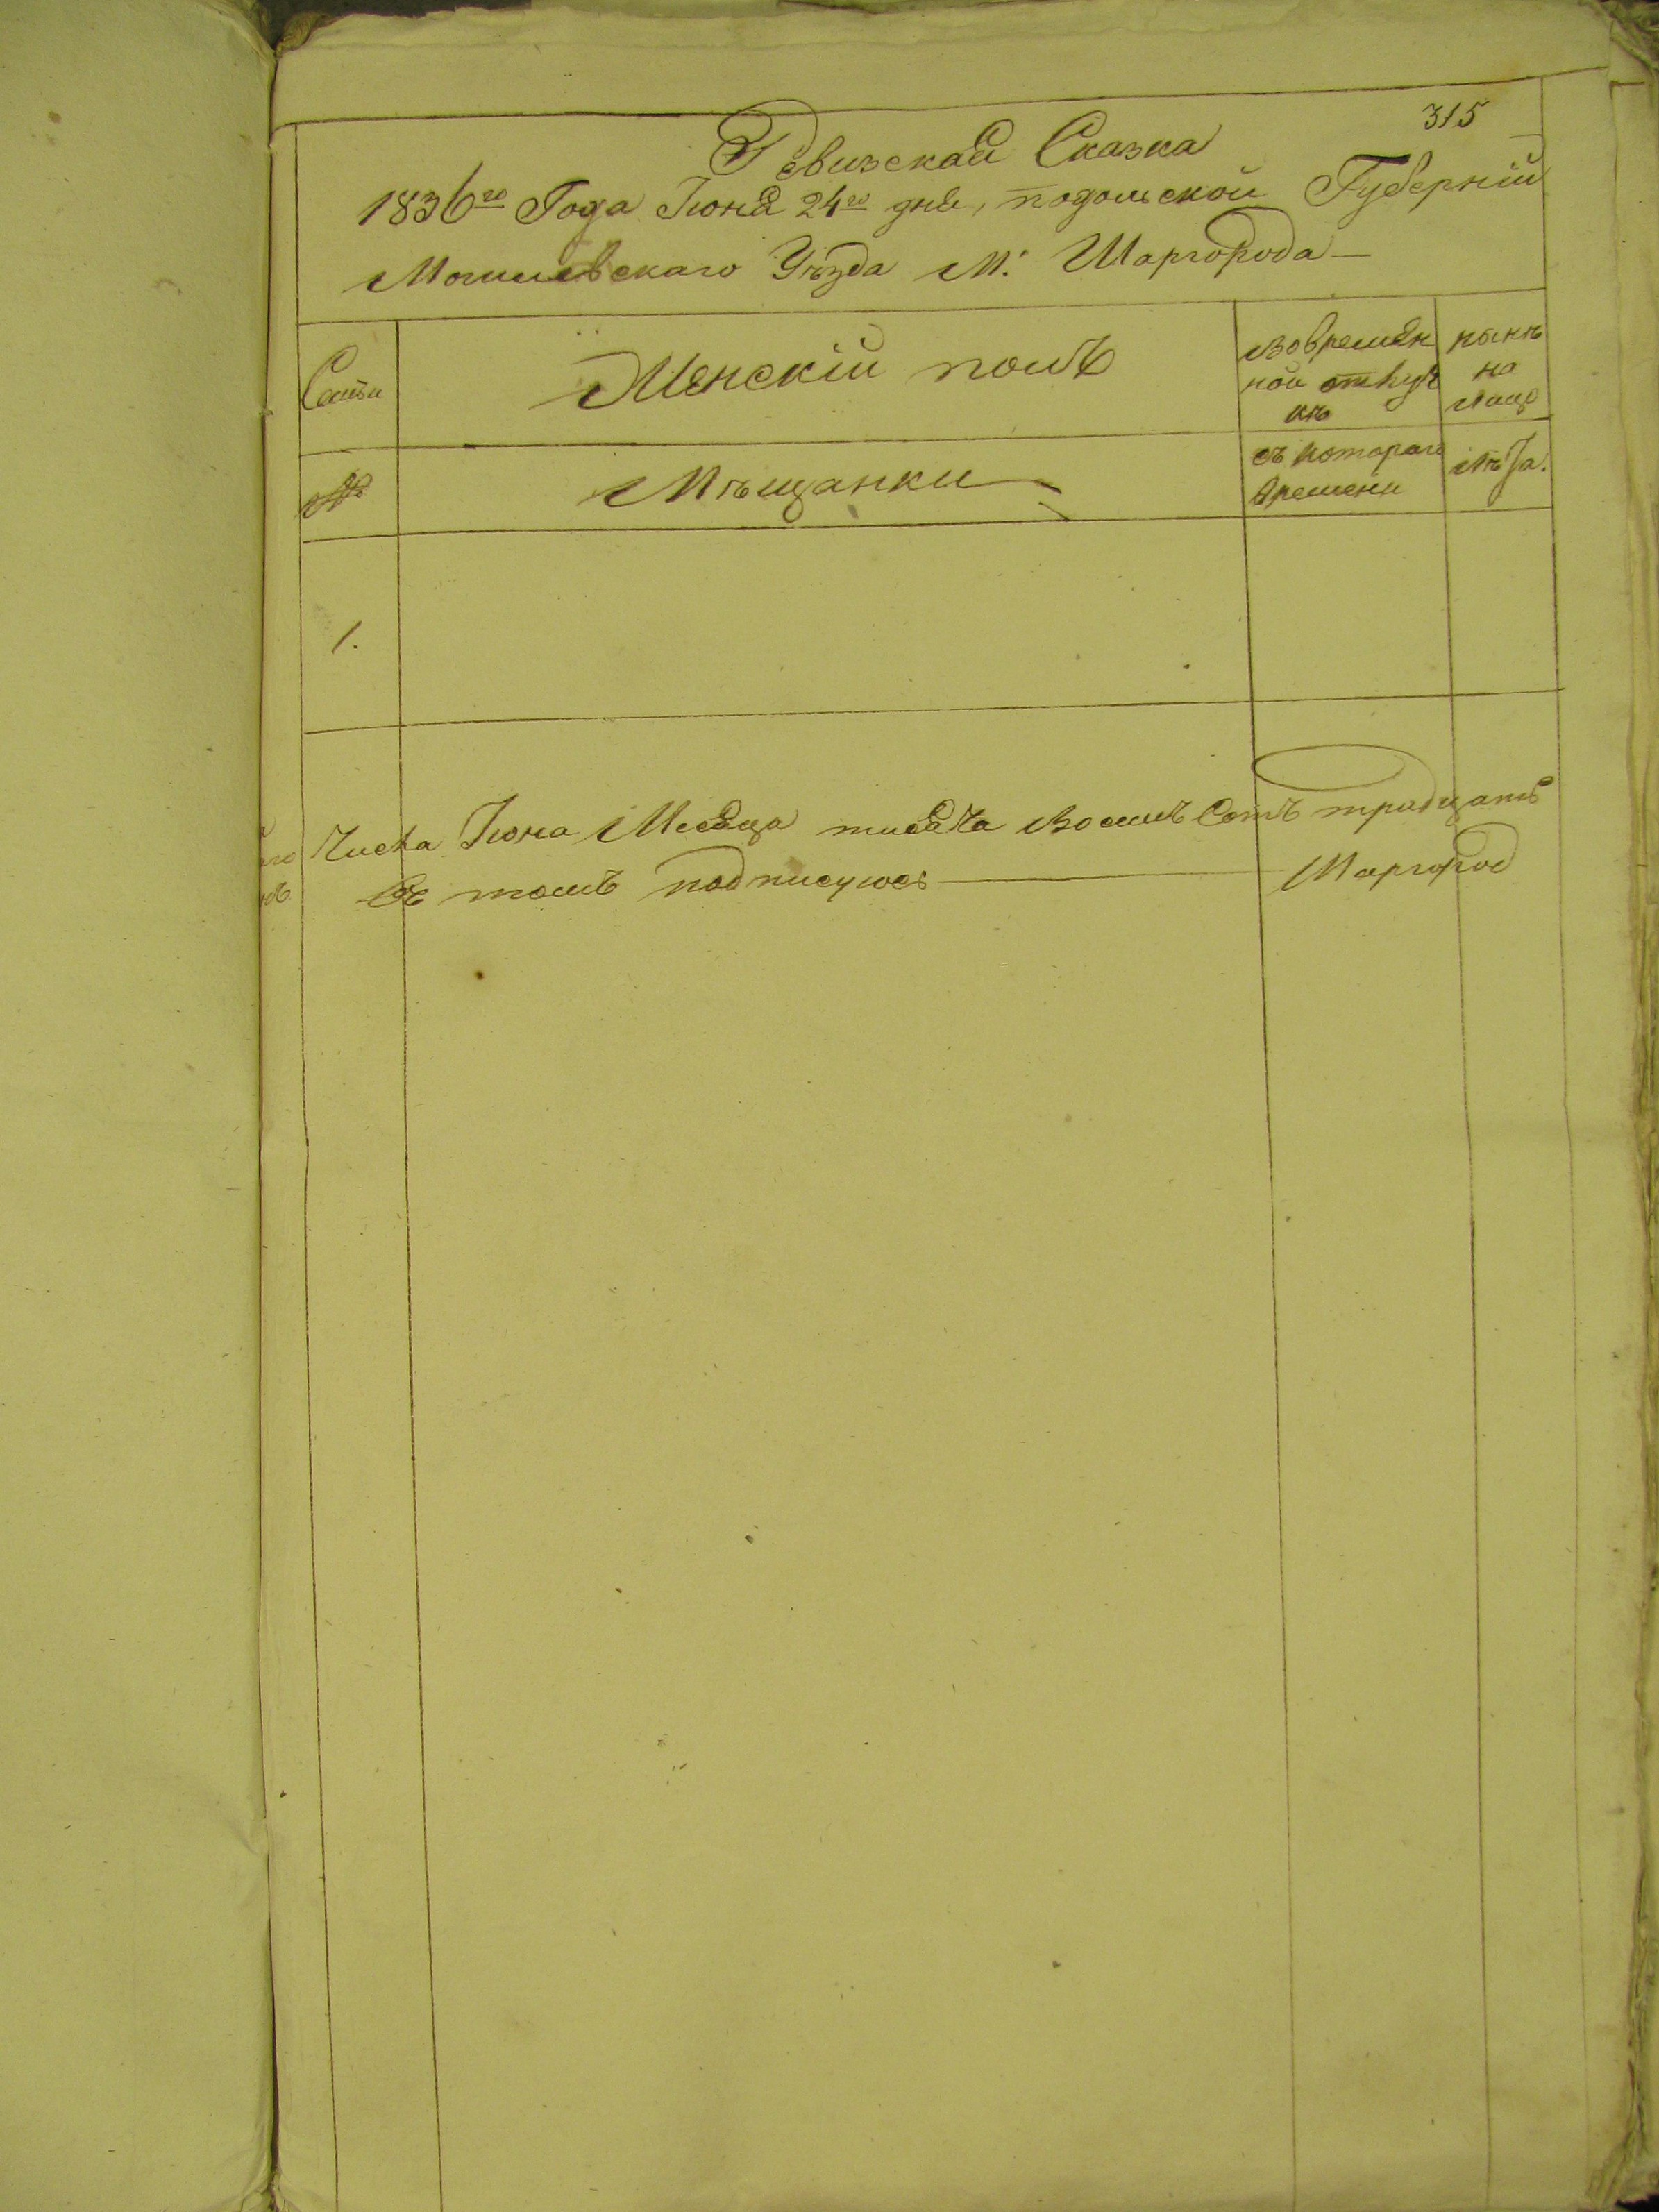 315
Ревизская Сказка
1836го Года Июня 24го дня, подольской Губерніи
Могилевскаго Уѣзда М: Шаргорода
Семьи
Женскій полъ
Вовремен
ной отлуч
кѣ
нынѣ
на
лице
№
Мѣщанки
съ котораго
времени
лѣта.
1.
Числа Июна Месяца тисяча Восемъ Сотъ традцать
Въ томъ подписуюсь Шаргород